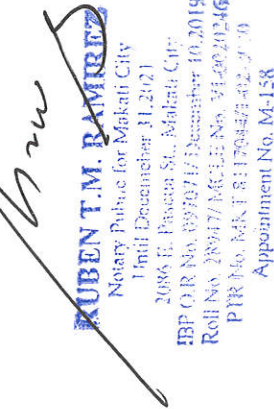 RUBEN T.M. RAMIREZ
Notary Public for Makati City
Until December 31, 2021
2086 E. Pascua St., Makati City
IBP O.R. No. December 10, 2019
Roll No. 28947/ MCLE No. VI-0020246
PTR No. MKT
Appointment No. M-158